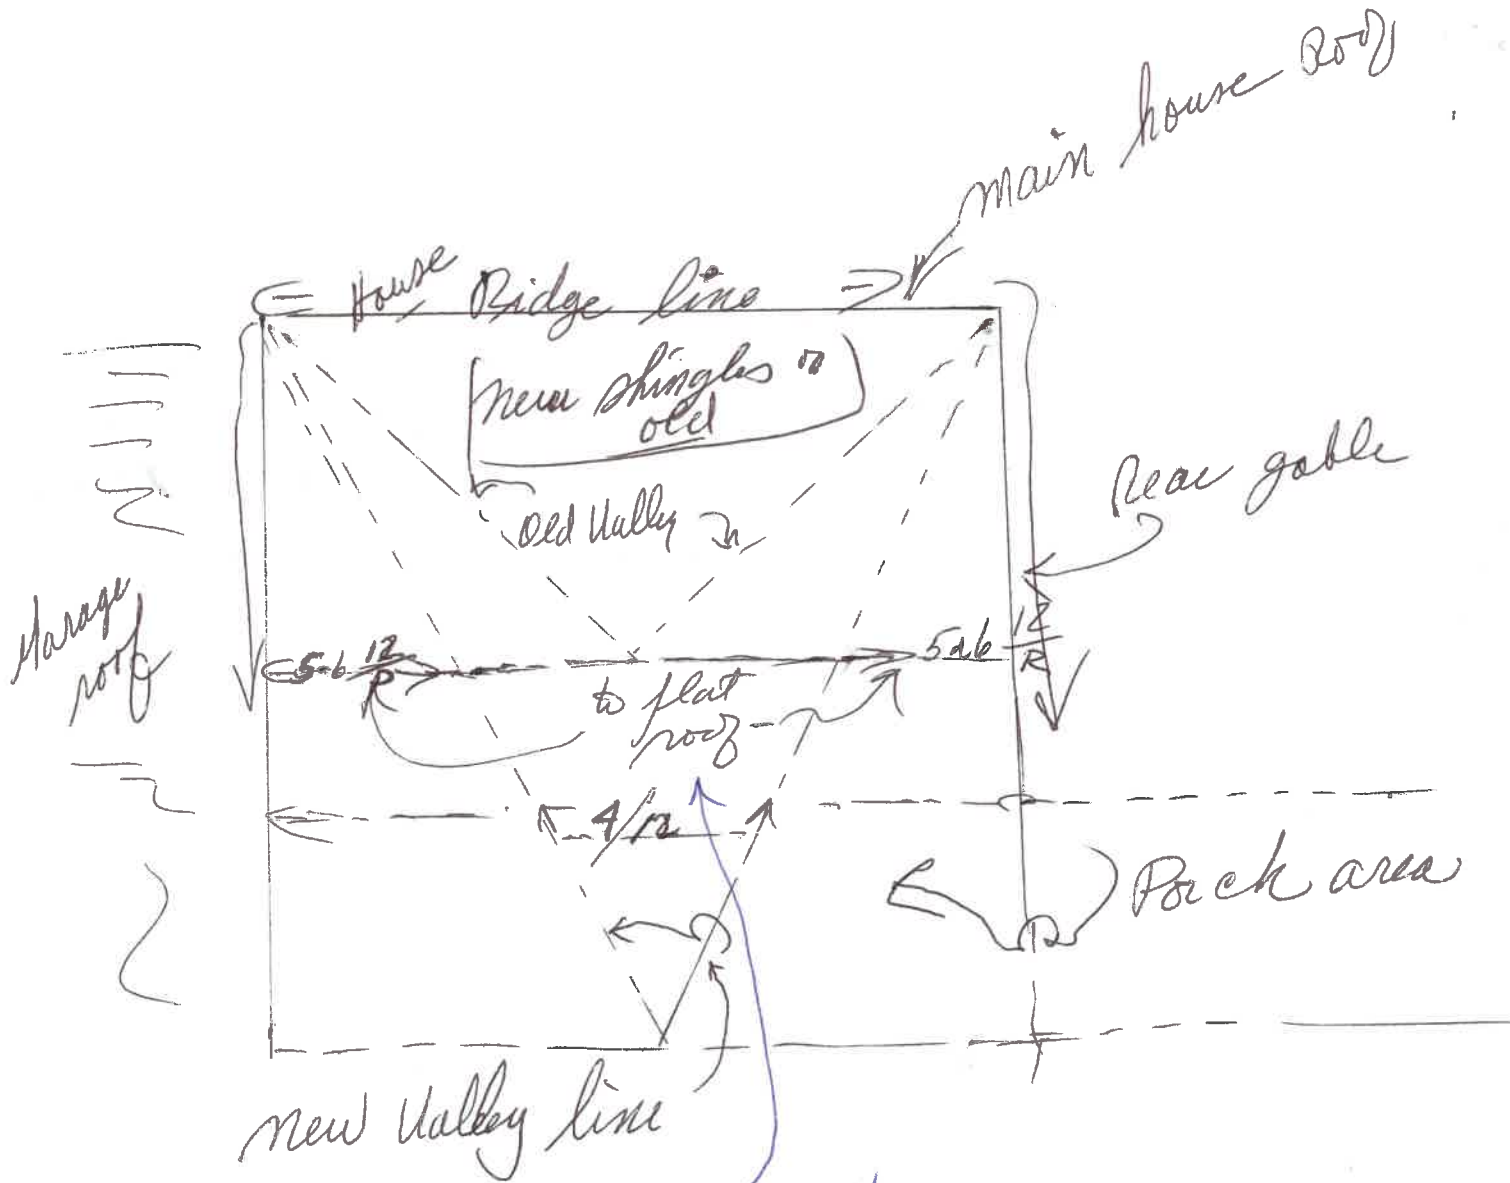 Main house Roof
House Ridge line
new shingles
old
Old Valley
Rear gable
Garage
roof
5-6 12/R
5-6 12/R
to flat
roof
4/12
Porch area
New Valley line